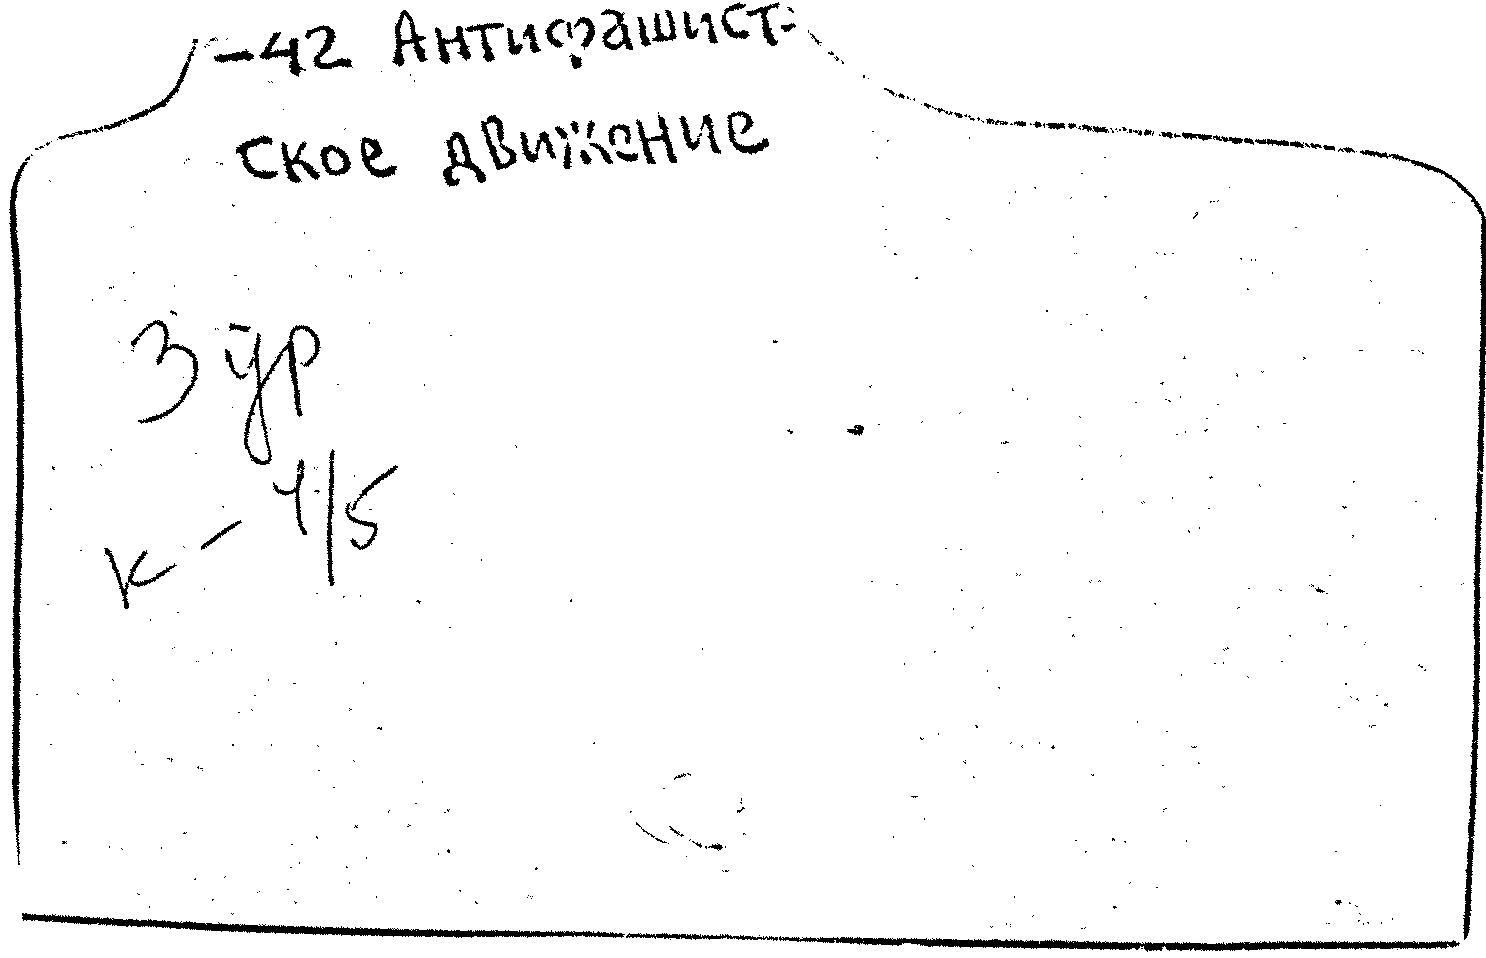 -42 Антифашист-
ское движение
3 ур
к - 4/5